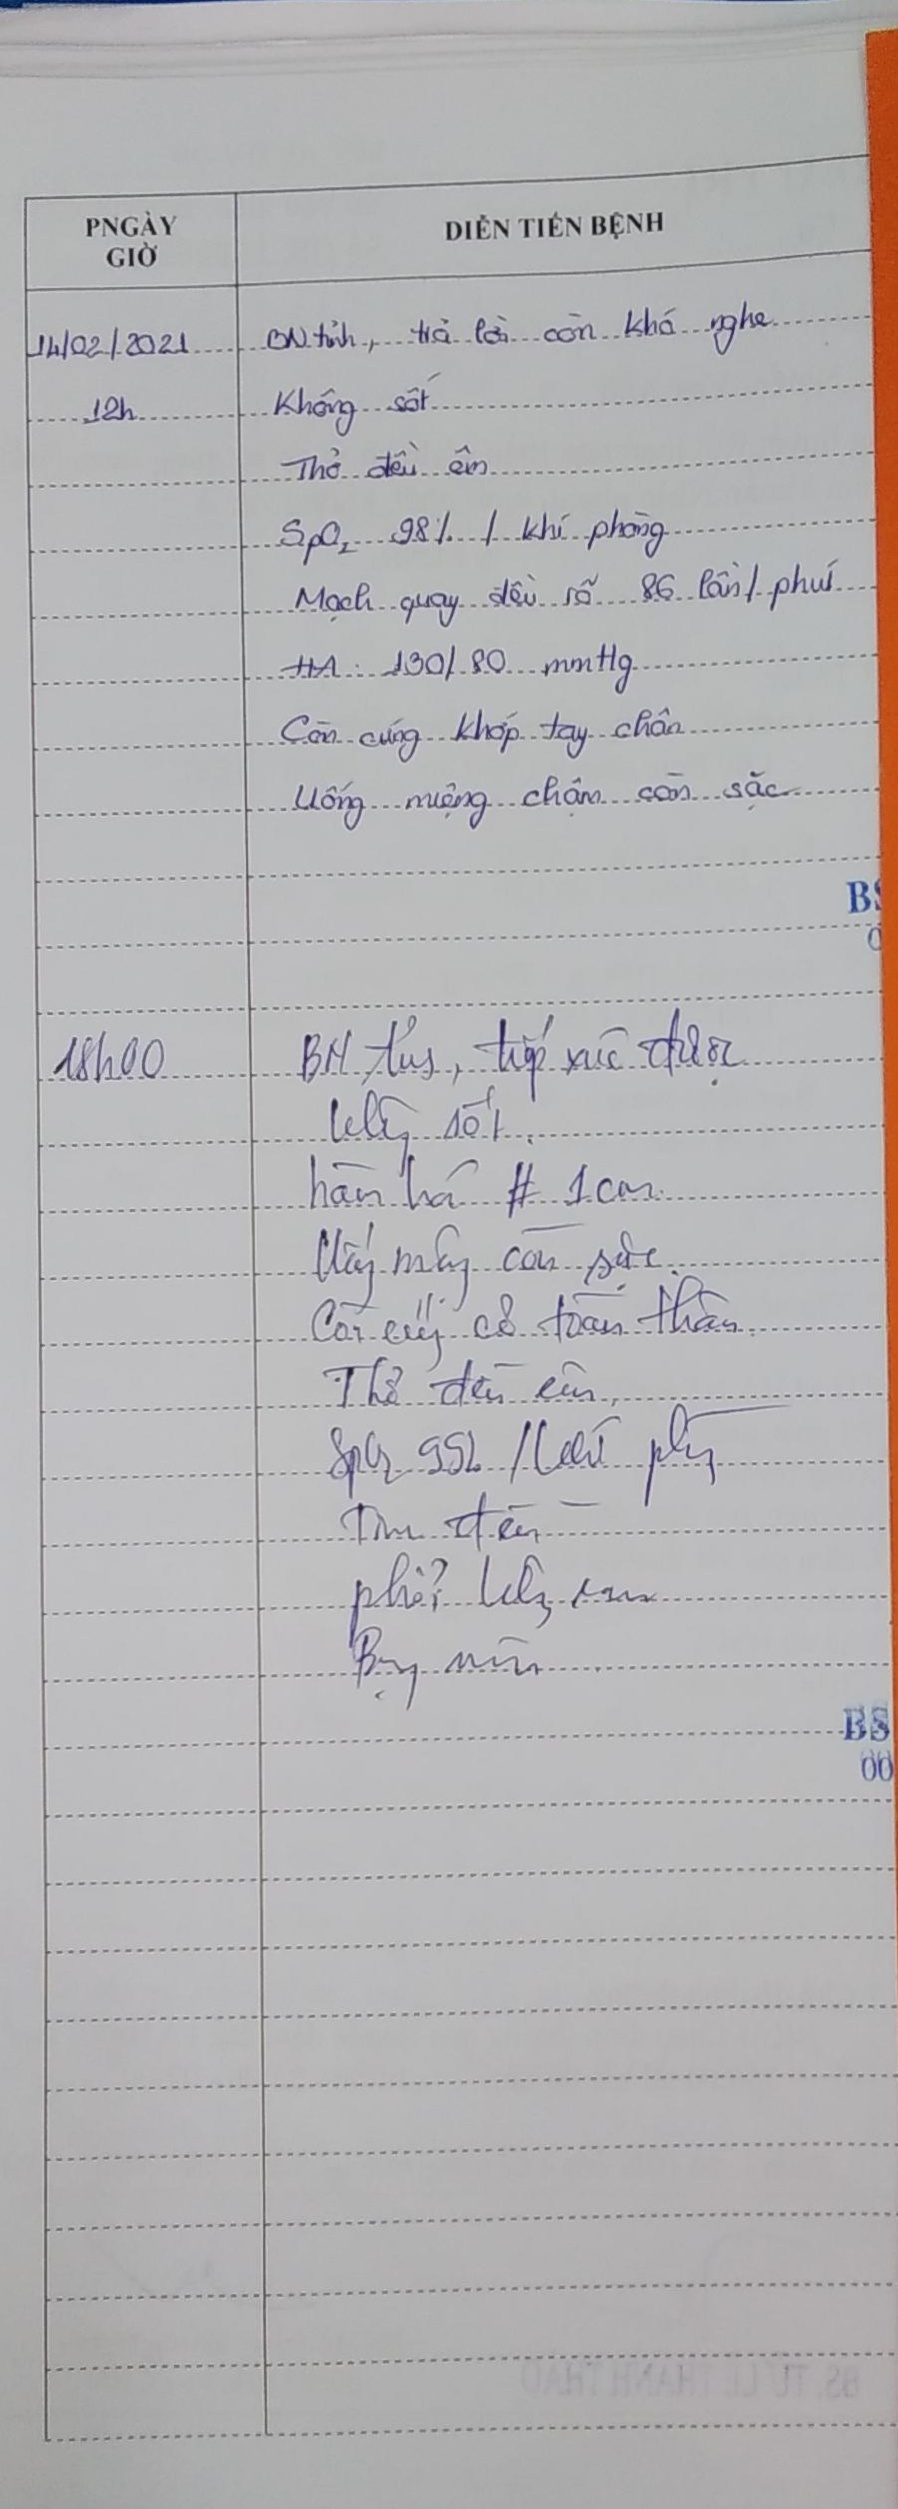 PNGÀY
GIỜ
DIỄN TIẾN BỆNH
14/02/2021
BN tỉnh, trả lời còn khó nghe
12h
Không sốt
Thở đều êm
SpO2 98% / khí phòng
Mạch quay đều rõ 86 lần/phút
HA: 130/80 mmHg
Còn cứng khớp tay chân
Uống miệng chậm còn sặc
BS
0
18h00
BN tỉnh, tiếp xúc được
không sốt.
há # 1cm.
còn sặc.
Còn cứng cơ toàn thân.
Thở đều êm,
SpO2 / khí phòng
Tim đều
phổi không ran
Bụng mềm
BS
00
BS. TỪ LÊ THANH THẢO